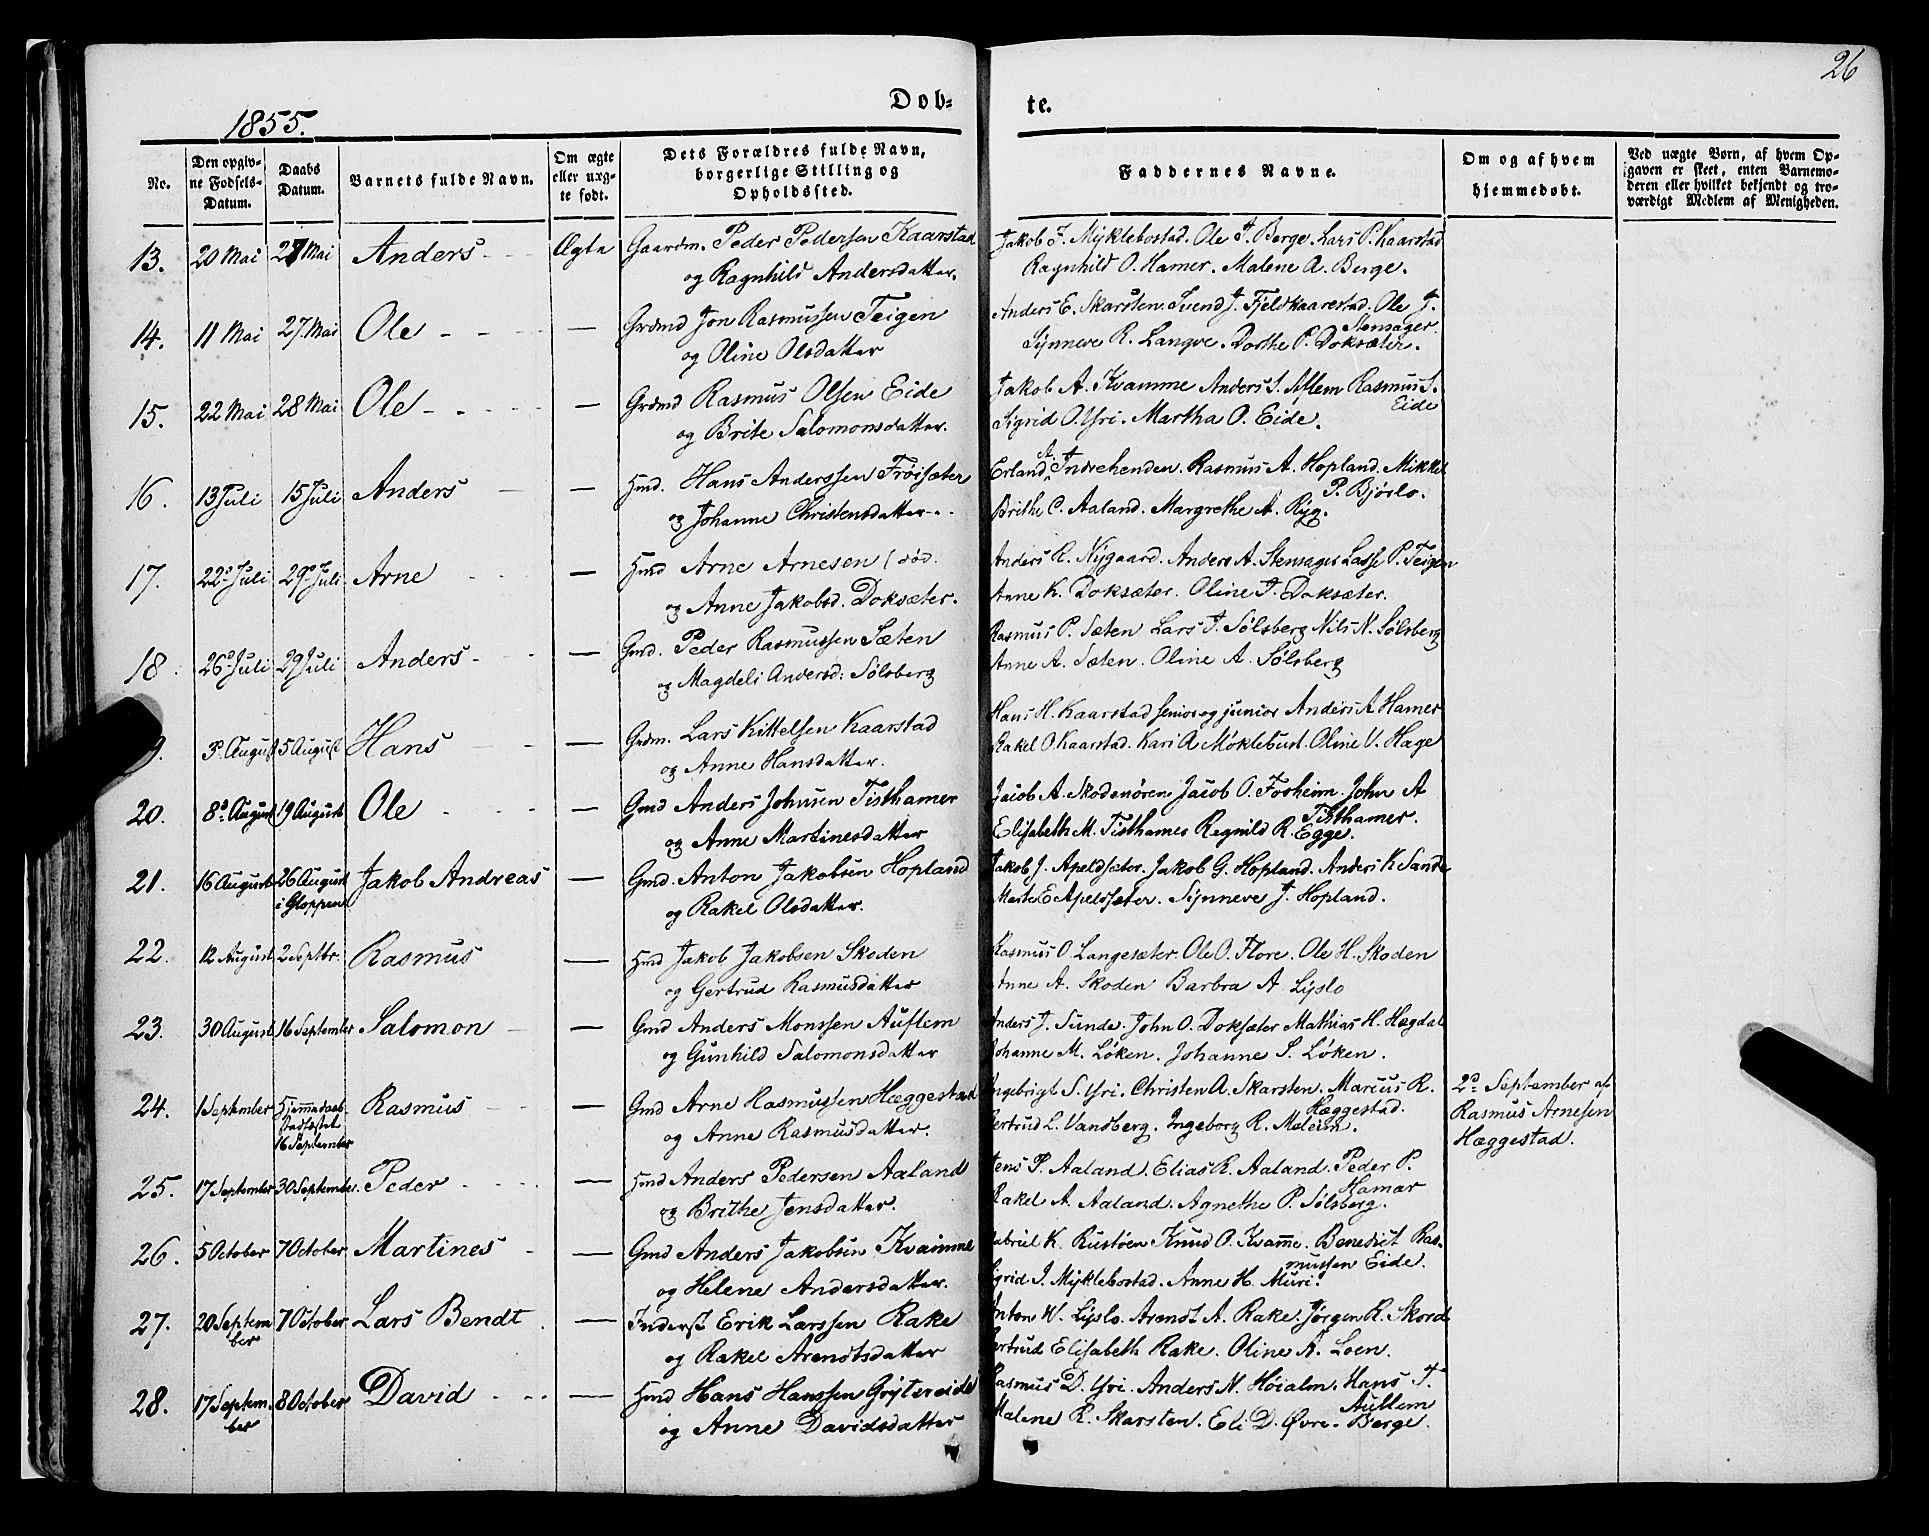 26
1855.
Døb- te.
No. Den opgivne Fødsels-Datum. Daabs Datum. Barnets fulde Navn. Om ægte eller uægte født. Dets Forældres fulde Navn, borgerlige Stilling og Opholdssted. Faddernes Navne. Om og af hvem hjemmedøbt. Ved uægte Børn, af hvem Opgaven er skeet, enten Barnemoderen eller hvilket bekjendt og troværdigt Medlem af Menigheden.
13. 20 Mai 27 Mai Anders Ægte Gaardm. Peder Pedersen Kaarstad Jakob J. Myklebostad. Ole J. Berge. Lars P. Kaarstad
og Ragnhild Andersdatter. Ragnhild O. Hamer. Malene A. Berge.
14. 11 Mai 27 Mai Ole — Grdmd Jon Rasmussen Teigen Anders E. Skarsten. Svend J. Fjeldkaarestad. Ole J. Stensager
og Oline Olsdatter Synneve R. Langve. Dorthe P. Doksæter.
15. 22 Mai 28 Mai Ole — Grdmd Rasmus Olsen Eide Jakob A. Kvamme Anders S. Aflem Rasmus S. Eide
og Brite Salomonsdatter. Sigrid O. Yri. Martha O. Eide.
16. 13 Juli 15 Juli Anders — Hmd. Hans Anderssen Frøisæter Erland A. Indrehenden. Rasmus A. Hopland. Mikkel P. Bjørlo.
og Johanne Christensdatter. Brithe C. Aaland. Margrethe A. Ryg.
17. 22 Juli 29 Juli Arne — Hmd Arne Arnesen (død. Anders R. Nygaard. Anders A. Stensager Lasse P. Teigen
og Anne Jakobsd. Doksæter. Anne K. Doksæter. Oline J. Doksæter.
18. 26 Juli 29 Juli Anders — Gmd. Peder Rasmussen Sæten Rasmus P. Sæten Lars J. Sølsberg Nils N. Sølsberg
og Magdeli Andersd: Sølsberg Anne A. Sæten. Oline A. Sølsberg
9. 3 August 5 August Hans — Grdm. Lars Kittelsen Kaarstad Hans H. Kaarstad senior og junior Anders A Hamer
og Anne Hansdatter. Rakel O. Kaarstad. Kari A Møklebust. Oline V. Hage
20. 8 August 19 August Ole — Gmd Anders Johnsen Tisthamer Jacob A. Skodenøren. Jacob O. Forheim. John A Tisthamer.
og Anne Martinesdatter Elisabeth M. Tisthamer Regnild R. Egge.
21. 16 August 26 August i Gloppen Jakob Andreas — Gmd. Anton Jakobsen Hopland Jakob J. Apeldsæter. Jakob G. Hopland. Anders K Sande
og Rakel Olsdatter. Marte E Apeldsæter. Synneve J. Hopland.
22. 12 August 2 Septbr. Rasmus — Hmd Jakob Jakobsen Skoden Rasmus O Langesæter Ole O. Flore. Ole H. Skoden
og Gertrud Rasmusdatter Anne A. Skoden Barbra A Lyslo
23. 30 August 16 September Salomon — Gmd Anders Monssen Auflem Anders J. Sunde. John O. Doksæter Mathias H. Hægdal
og Gunhild Salomonsdatter Johanne M. Løken. Johanne S. Løken.
24. 1 September Hjemmedaab Stadfæstet 16 September Rasmus — Gmd Arne Rasmussen Hæggestad Ingebrigt S. Yri. Christen A. Skarsten. Marcus R. Hæggestad. 2d September af Rasmus Arnesen Hæggestad.
og Anne Rasmusdatter. Gertrud L. Vandberg. Ingeborg R. Meleim.
25. 17 September 30 September. Peder — Hmd Anders Pedersen Aaland Jens P. Aaland. Elias R. Aaland. Peder P. Hamar
og Brithe Jensdatter. Rakel A. Aaland. Agnethe P. Sølsberg.
26. 5 October 7 October Martines — Gmd Anders Jakobsen Kvamme Gabriel K. Rustøen Knud O. Kvamme. Benedict Rasmussen Eide.
og Helene Andersdatter. Sigrid J. Myklebostad. Anne H. Muri.
27. 20 September 7 October Lars Bendt — Inderst Erik Larssen Rake Anton W. Lyslo. Arendt A. Rake. Jørgen R. Skord
og Rakel Arendtsdatter Gertrud Elisabeth Rake. Oline A. Loen.
28. 17 September 8 October David — Hmd Hans Hanssen Grytereide Rasmus D. Yri. Anders N. Høialm. Hans J. Auflem
og Anne Davidsdatter Malene R. Skarsten. Eli D. Øvre-Berge.